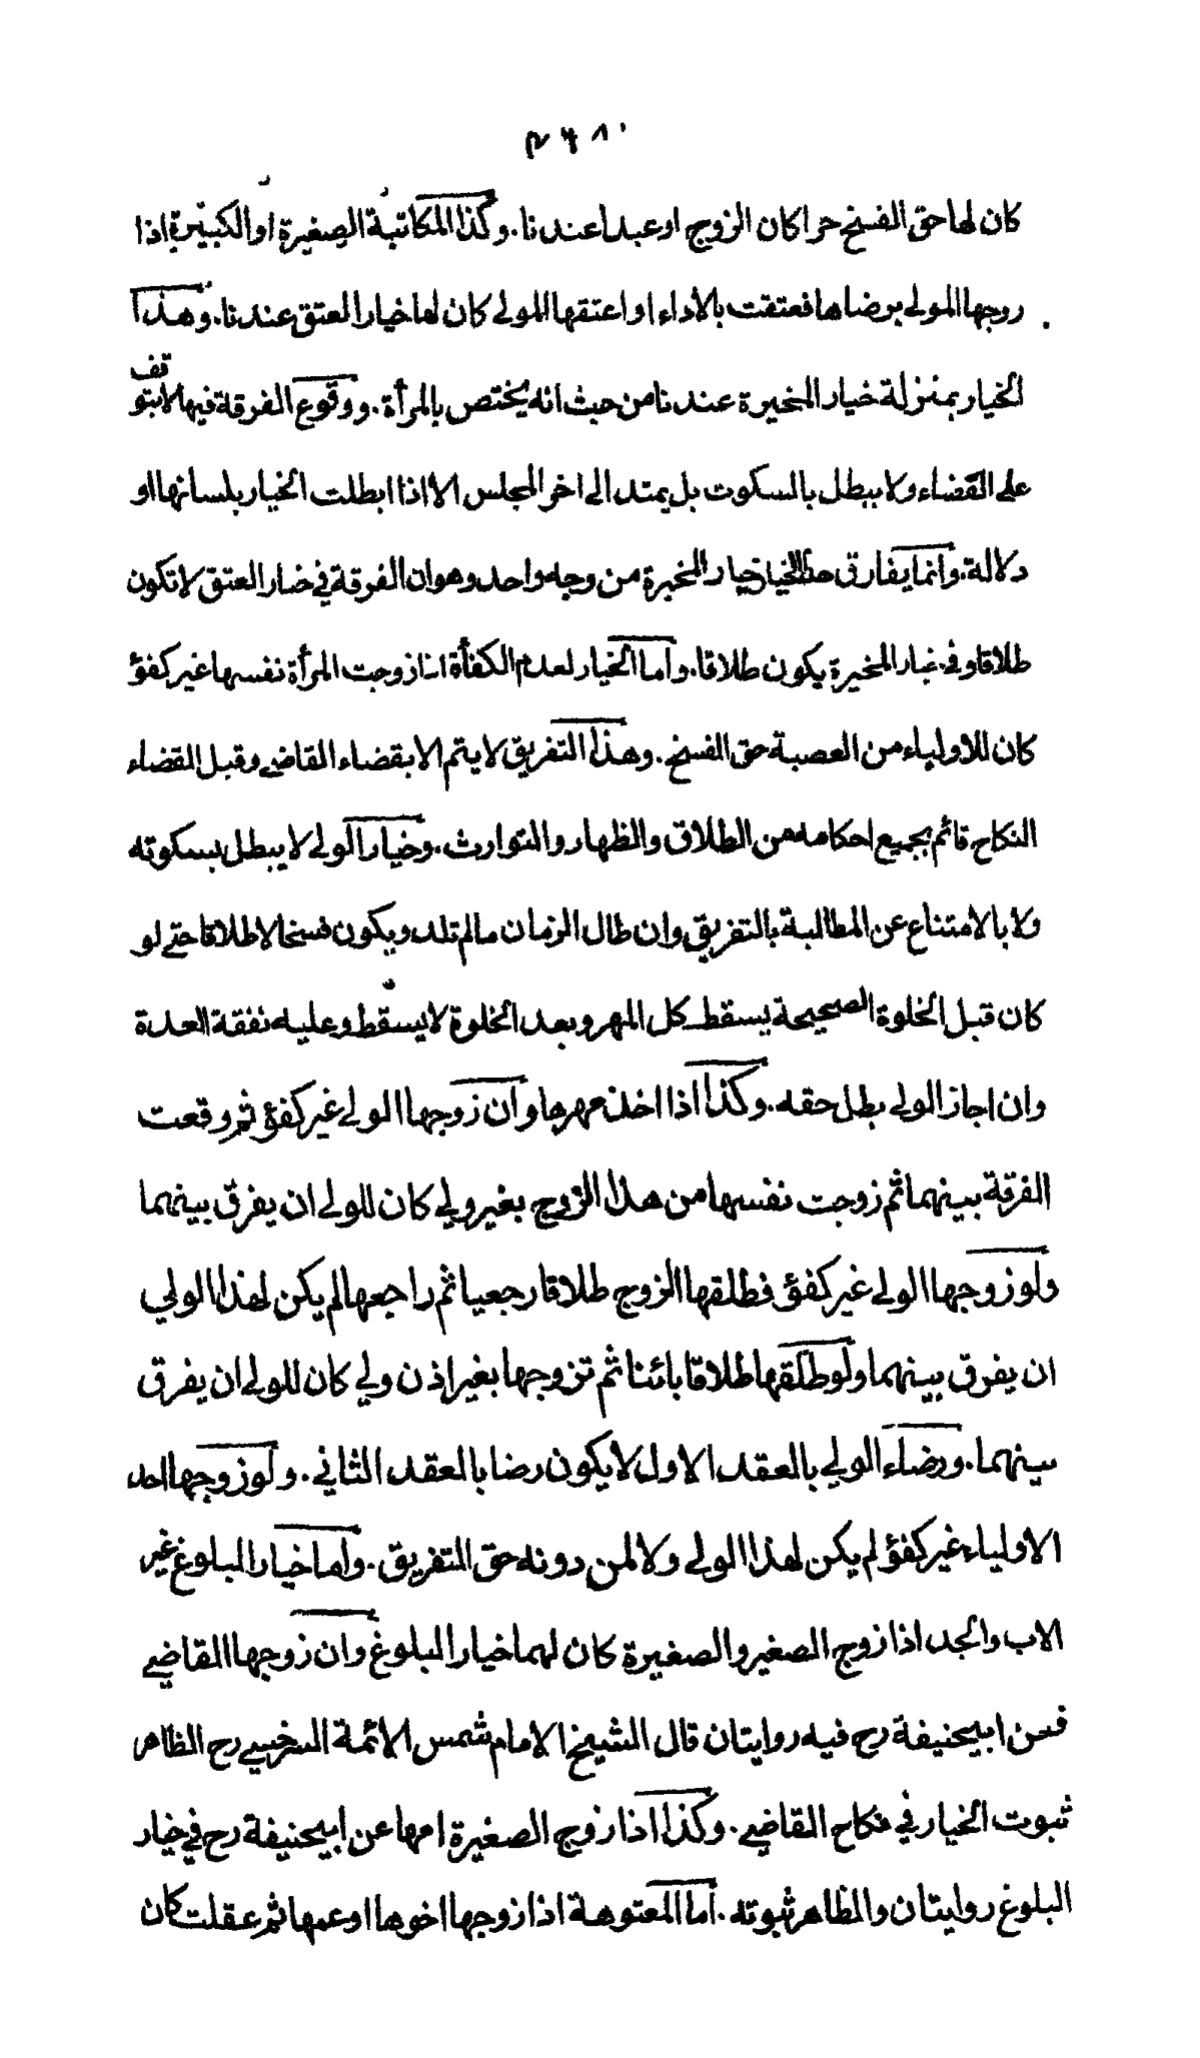 كان لها حق الفسخ حرا كان الزوج او عبدا عندنا. وكذا المكاتبة الصغيرة او الكبيرة اذا
زوجها المولى برضاها فعتقت بالاداء او اعتقها المولى كان لها خيار العتق عندنا. وهذا
الخيار بمنزلة خيار المخيرة عندنا من حيث انه يختص بالمرأة. ووقوع الفرقة فيها لا يتوقف
على القضاء ولا يبطل بالسكوت بل يمتد الى اخر المجلس الا اذا ابطلت الخيار بلسانها او
دلالة. وانما يفارق هذا الخيار خيار المخيرة من وجه واحد وهو ان الفرقة في خيار العتق لا تكون
طلاقا وفي خيار المخيرة يكون طلاقا. واما الخيار لعدم الكفأة اذا زوجت المرأة نفسها غير كفؤ
كان للاولياء من العصبة حق الفسخ. وهذا التفريق لا يتم الا بقضاء القاضي وقبل القضاء
النكاح قائم بجميع احكامه من الطلاق والظهار والتوارث. وخيار الولي لا يبطل بسكوته
ولا بالامتناع عن المطالبة بالتفريق وان طال الزمان مالم تلد ويكون فسخا لا طلاقا حتى لو
كان قبل الخلوة الصحيحة يسقط كل المهر وبعد الخلوة لا يسقط وعليه نفقة العدة
وان اجاز الولي بطل حقه. وكذا اذا اخذ مهرها وان زوجها الولي غير كفؤ ثم وقعت
الفرقة بينهما ثم زوجت نفسها من هذا الزوج بغير ولي كان للولي ان يفرق بينهما
ولو زوجها الولي غير كفؤ فطلقها الزوج طلاقا رجعيا ثم راجعها لم يكن لهذا الولي
ان يفرق بينهما ولو طلقها طلاقا بائنا ثم تزوجها بغير اذن ولي كان للولي ان يفرق
بينهما. ورضاء الولي بالعقد الاول لا يكون رضا بالعقد الثاني. ولو زوجها احد
الاولياء غير كفؤ لم يكن لهذا الولي ولا لمن دونه حق التفريق. واما خيار البلوغ غير
الاب والجد اذا زوج الصغير والصغيرة كان لهما خيار البلوغ وان زوجها القاضي
فعن ابيحنيفة رح فيه روايتان قال الشيخ الامام شمس الائمة السرخسي رح الظاهر
ثبوت الخيار في نكاح القاضي. وكذا اذا زوج الصغيرة امها عن ابيحنيفة رح في خيار
البلوغ روايتان والظاهر ثبوته. اما المعتوهة اذا زوجها اخوها او عمها ثم عقلت كان